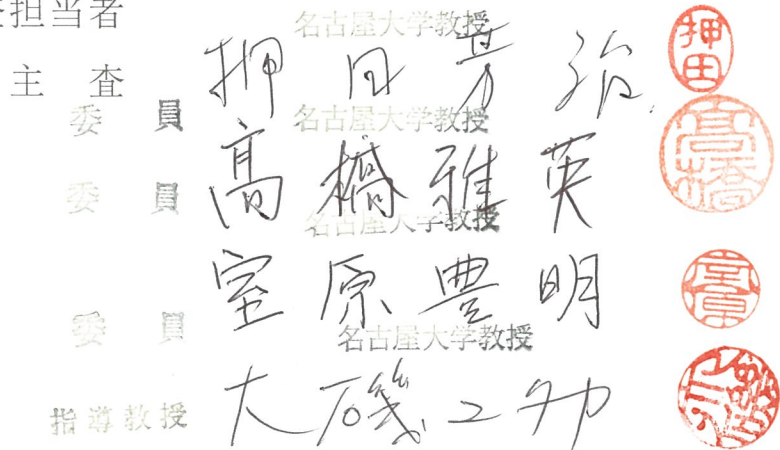 担当者
名古屋大学教授
主 査 押田芳治 押田
委 員 名古屋大学教授
高橋雅英 高橋
委 員 名古屋大学教授
室原豊明 室原
委 員 名古屋大学教授
指導教授 大磯ユタカ